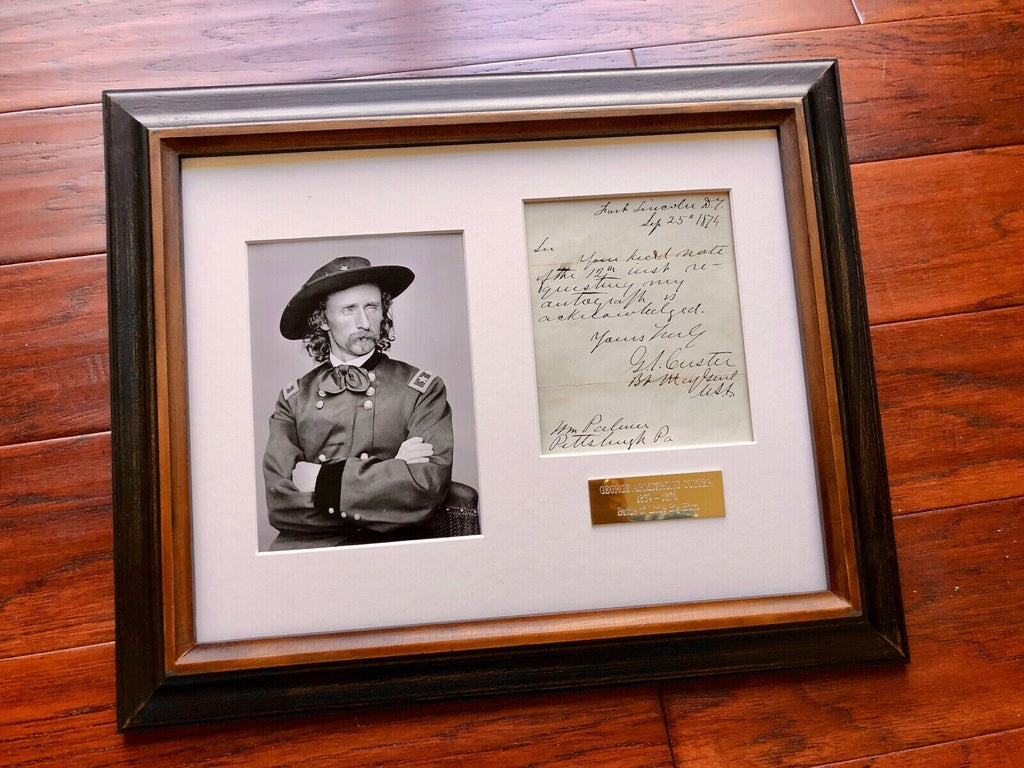 Fort Lincoln D.T.
Sep 25th 1874
Sir
Your kind note
of the 12th inst re-
questing my
autograph is
acknowledged.
Yours Truly
G.A. Custer
Bt Maj Genl
U.S.A.
Wm Palmer
Pittsburgh Pa
GEORGE ARMSTRONG CUSTER
1839 - 1876
Battle of Little Big Horn